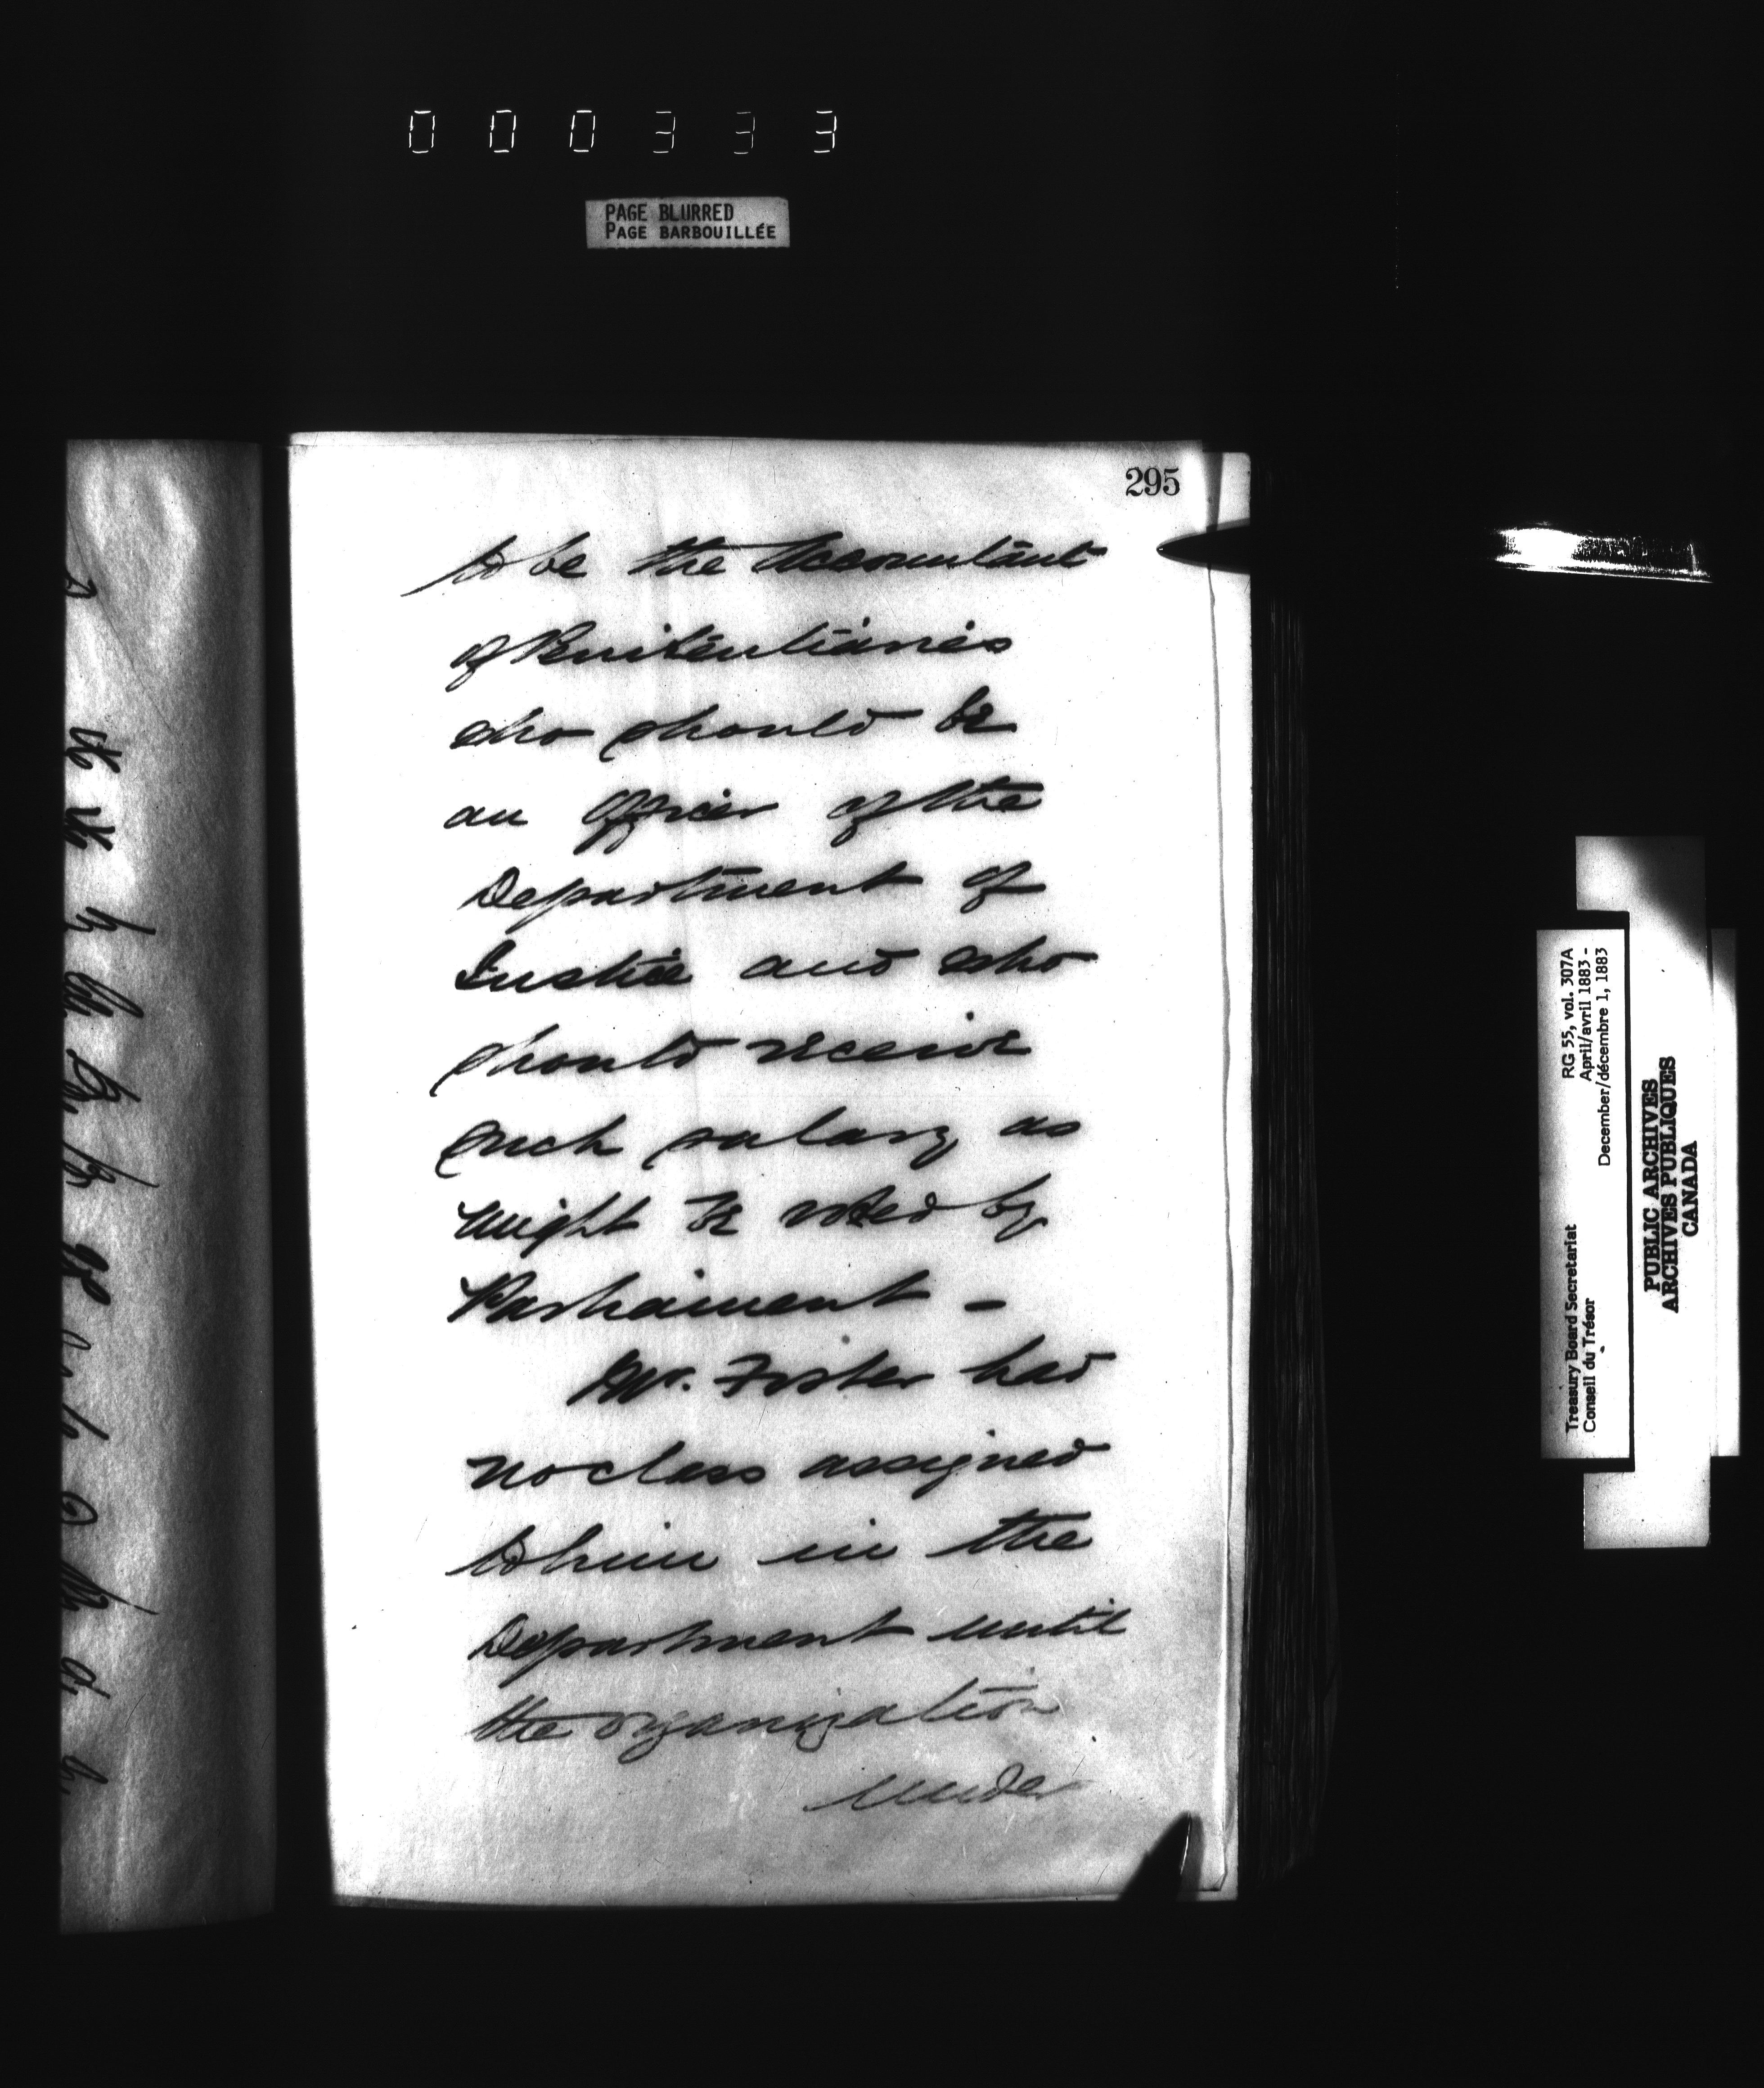 000333
PAGE BLURRED
PAGE BARBOUILLÉE
295
to be the Accountant
of Penitentiaries
who should be
an officer of the
Department of
Justice and who
should receive
such salary as
might be voted by
Parliament -
Mr. Foster had
no class assigned
to him in the
Department until
the organization
under
RG 55, vol. 307A
April/avril 1883 -
December/décembre 1, 1883
Treasury Board Secretariat
Conseil du Trésor
PUBLIC ARCHIVES
ARCHIVES PUBLIQUES
CANADA